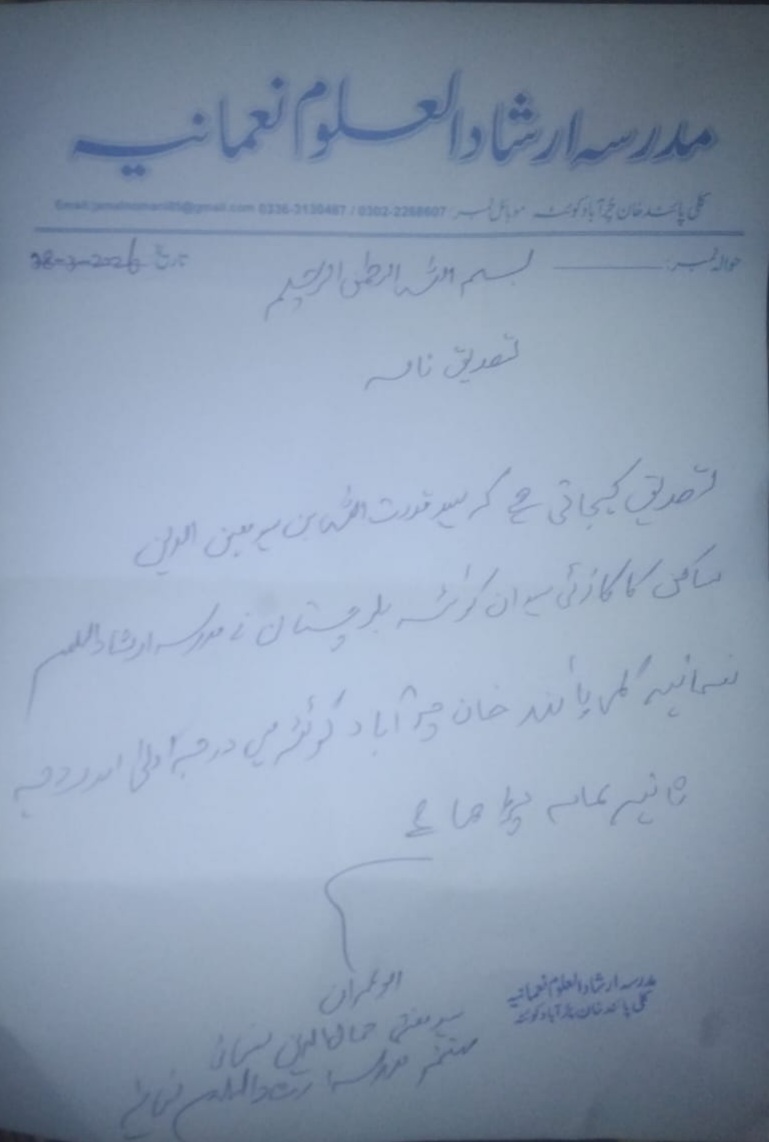 مدرسہ ارشاد العلوم نعمانیہ
کلی پائند خان پجڑ آباد کوئٹہ موبائل نمبر: 0302-2268607 / 0336-3130487
حوالہ نمبر: تاریخ 28-3-2026
بسم اللہ الرحمٰن الرحیم
تصدیق نامہ
تصدیق کیجاتی ہے کہ سید قدرت اللہ بن سید معین الدین
ساکن کوئٹہ بلوچستان نے مدرسہ ارشاد العلوم
نعمانیہ کلی پائند خان آباد کوئٹہ میں درجہ اولیٰ اور درجہ
ثانیہ پڑھا ہے
ابو عمران
سید مفتی جمال الدین نعمانی
مدرسہ ارشاد العلوم نعمانیہ
مدرسہ ارشاد العلوم نعمانیہ
کلی پائند خان آباد کوئٹہ